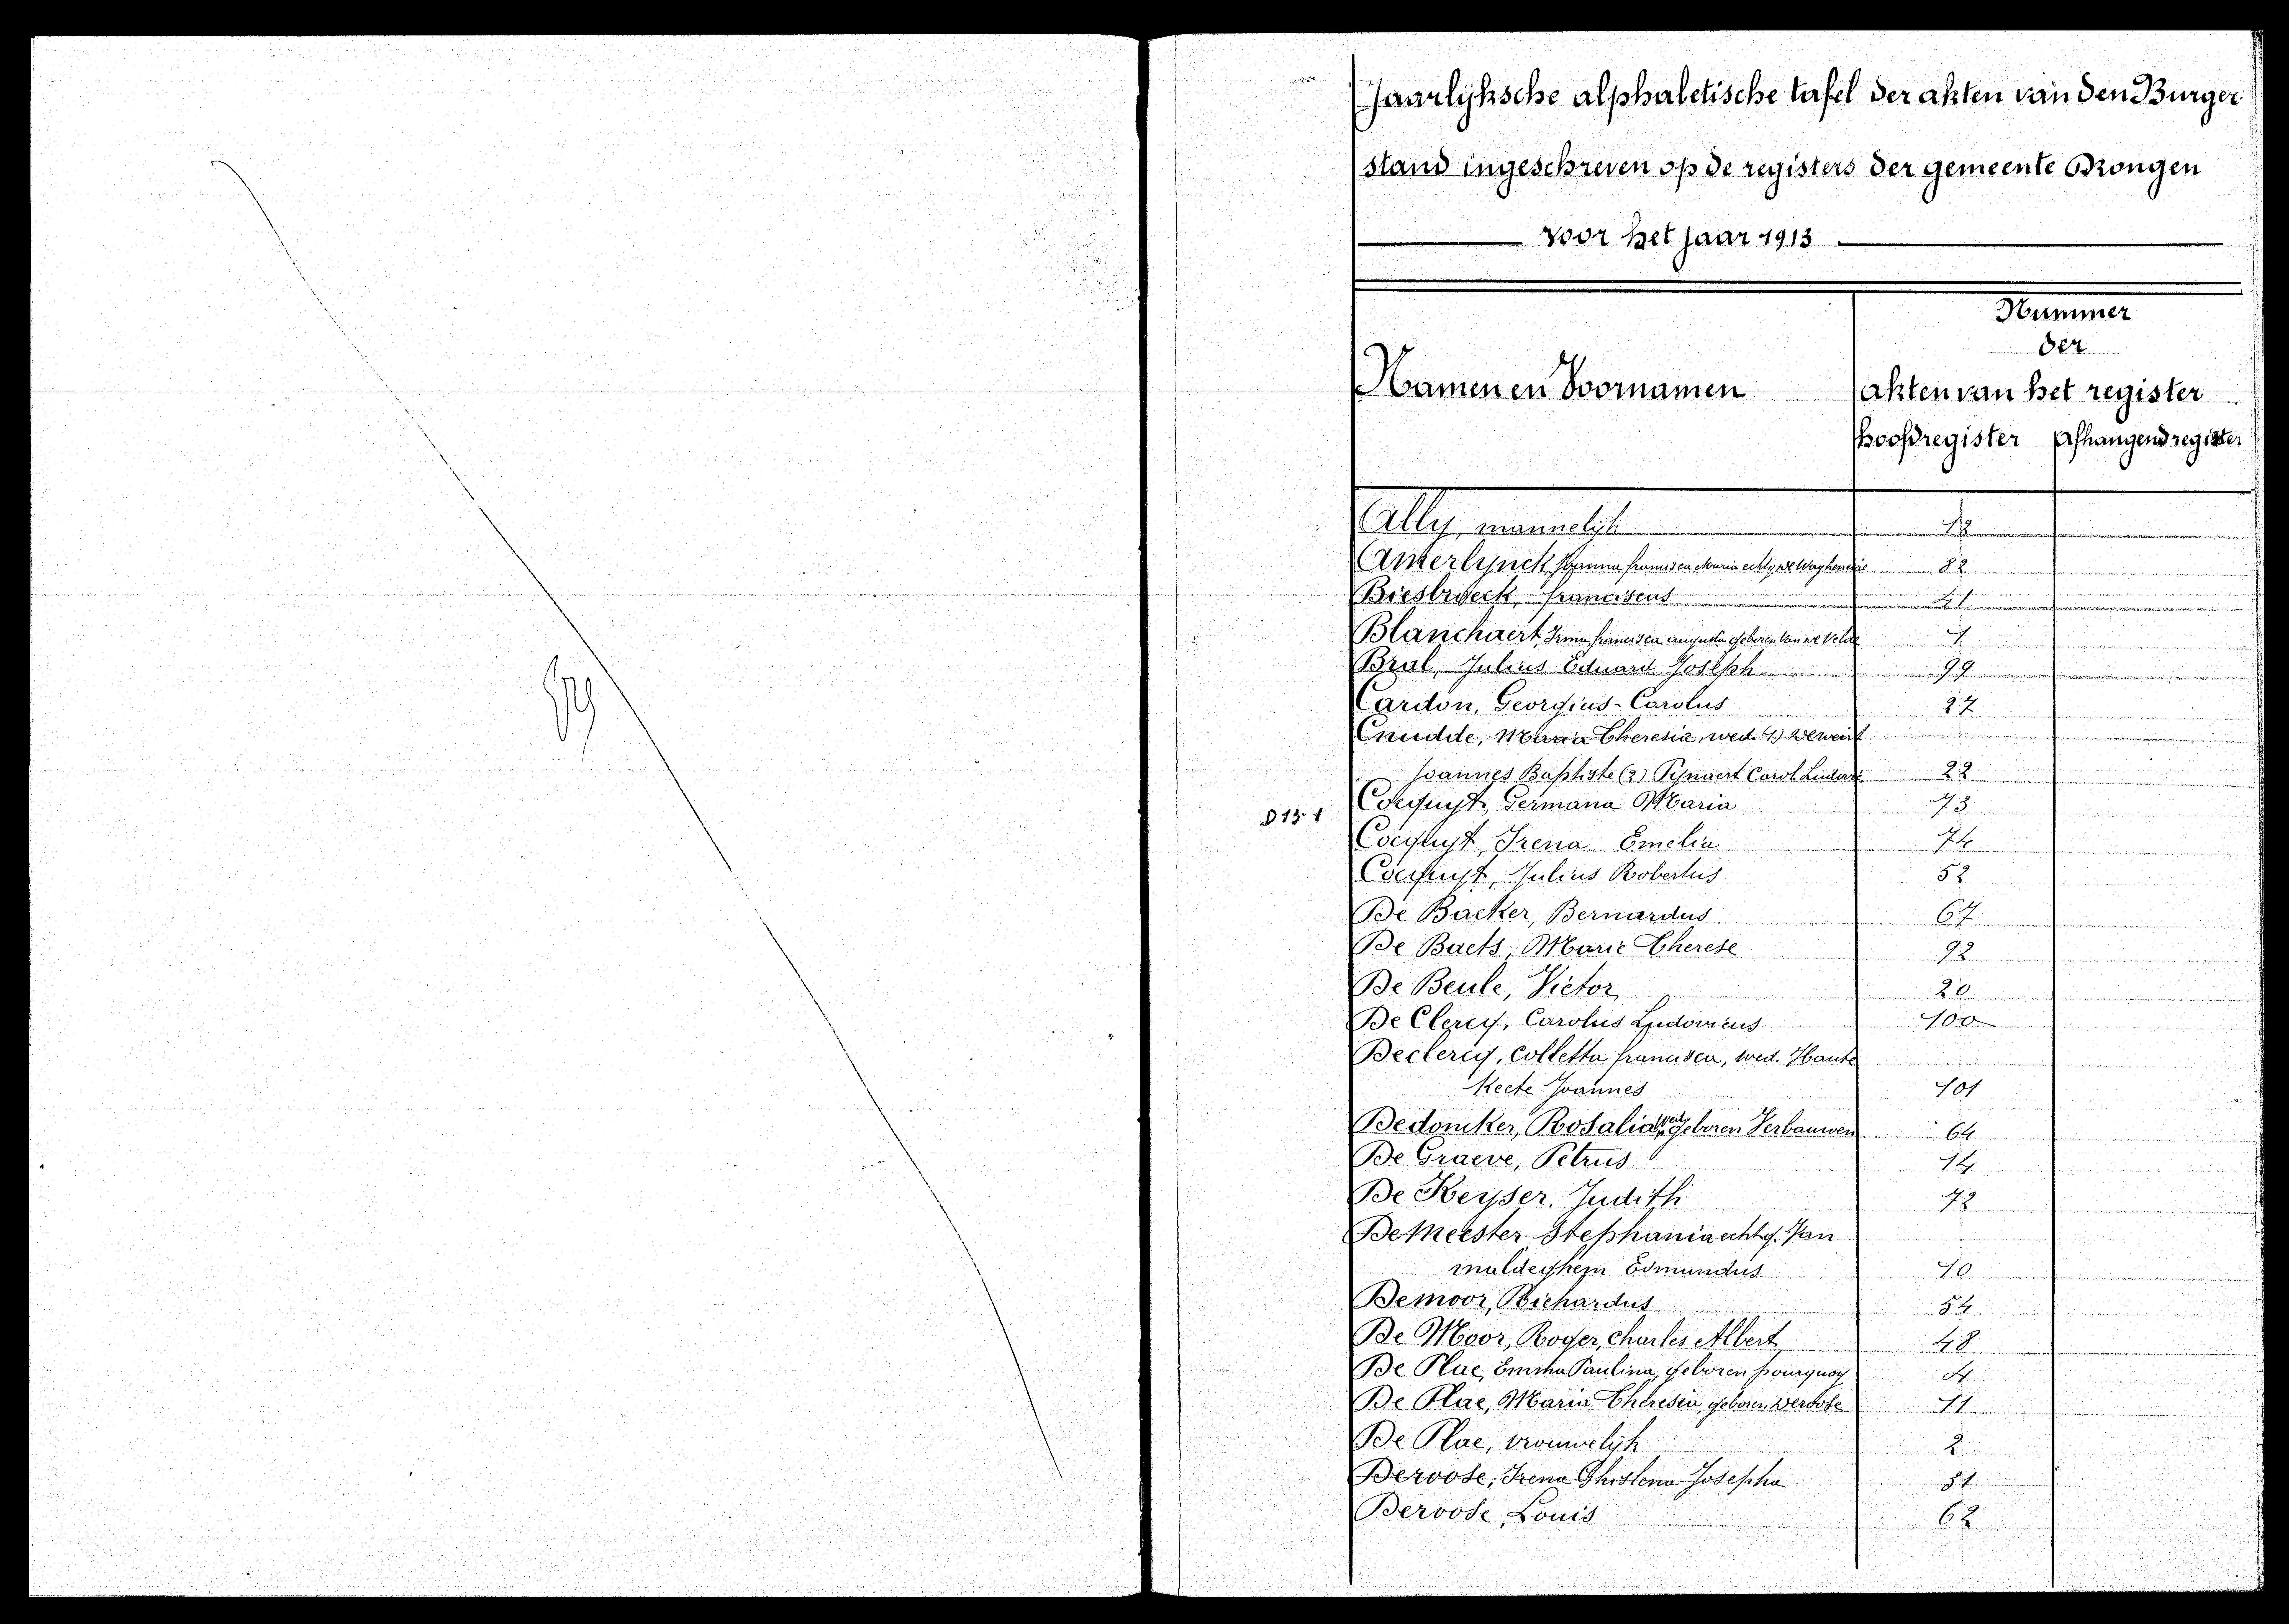 Jaarlijksche alphabetische tafel der akten van den Burger
stand ingeschreven op de registers der gemeente Drongen
voor het jaar 1913
Namen en Voornamen
Nummer
der
akten van het register
Hoofdregister Afhangend register
Ally, mannelijk 12
Amerlynck, Joanna francisca Maria echtg. De Waghenaere 82
Biesbroeck, franciscus 41
Blanchaert, Irma francisca augusta geboren Van de Velde 1
Bral, Julius Eduard Joseph 99
Cardon, Georgius-Carolus 27
Cnudde, Maria Theresia, wed. 1) Deweirt
Joannes Baptiste (2) Pynaert Carol Ludovi 22
D 13. 1
Cocquyt, Germana Maria 73
Cocquyt, Irena Emelia 74
Cocquyt, Julius Robertus 52
De Backer, Bernardus 67
De Baets, Marie Therese 92
De Beule, Victor 20
De Clercq, Carolus Ludovicus 100
Declercq, Colletta francisca, wed. Haute
Keete Joannes 101
Dedoncker, Rosalia wed. geboren Verbauwen 64
De Graeve, Petrus 14
De Keyser, Judith 72
De Meester Stephania echtg. Van
maldeghem Edmundus 10
Demoor, Richardus 54
De Moor, Roger, Charles Albert 48
De Plae, Emma Paulina, geboren fourquoy 4
De Plae, Maria Theresia, geboren Deroose 11
De Plae, vrouwelijk 2
Deroose, Irena Ghislena Josepha 81
Deroose, Louis 62